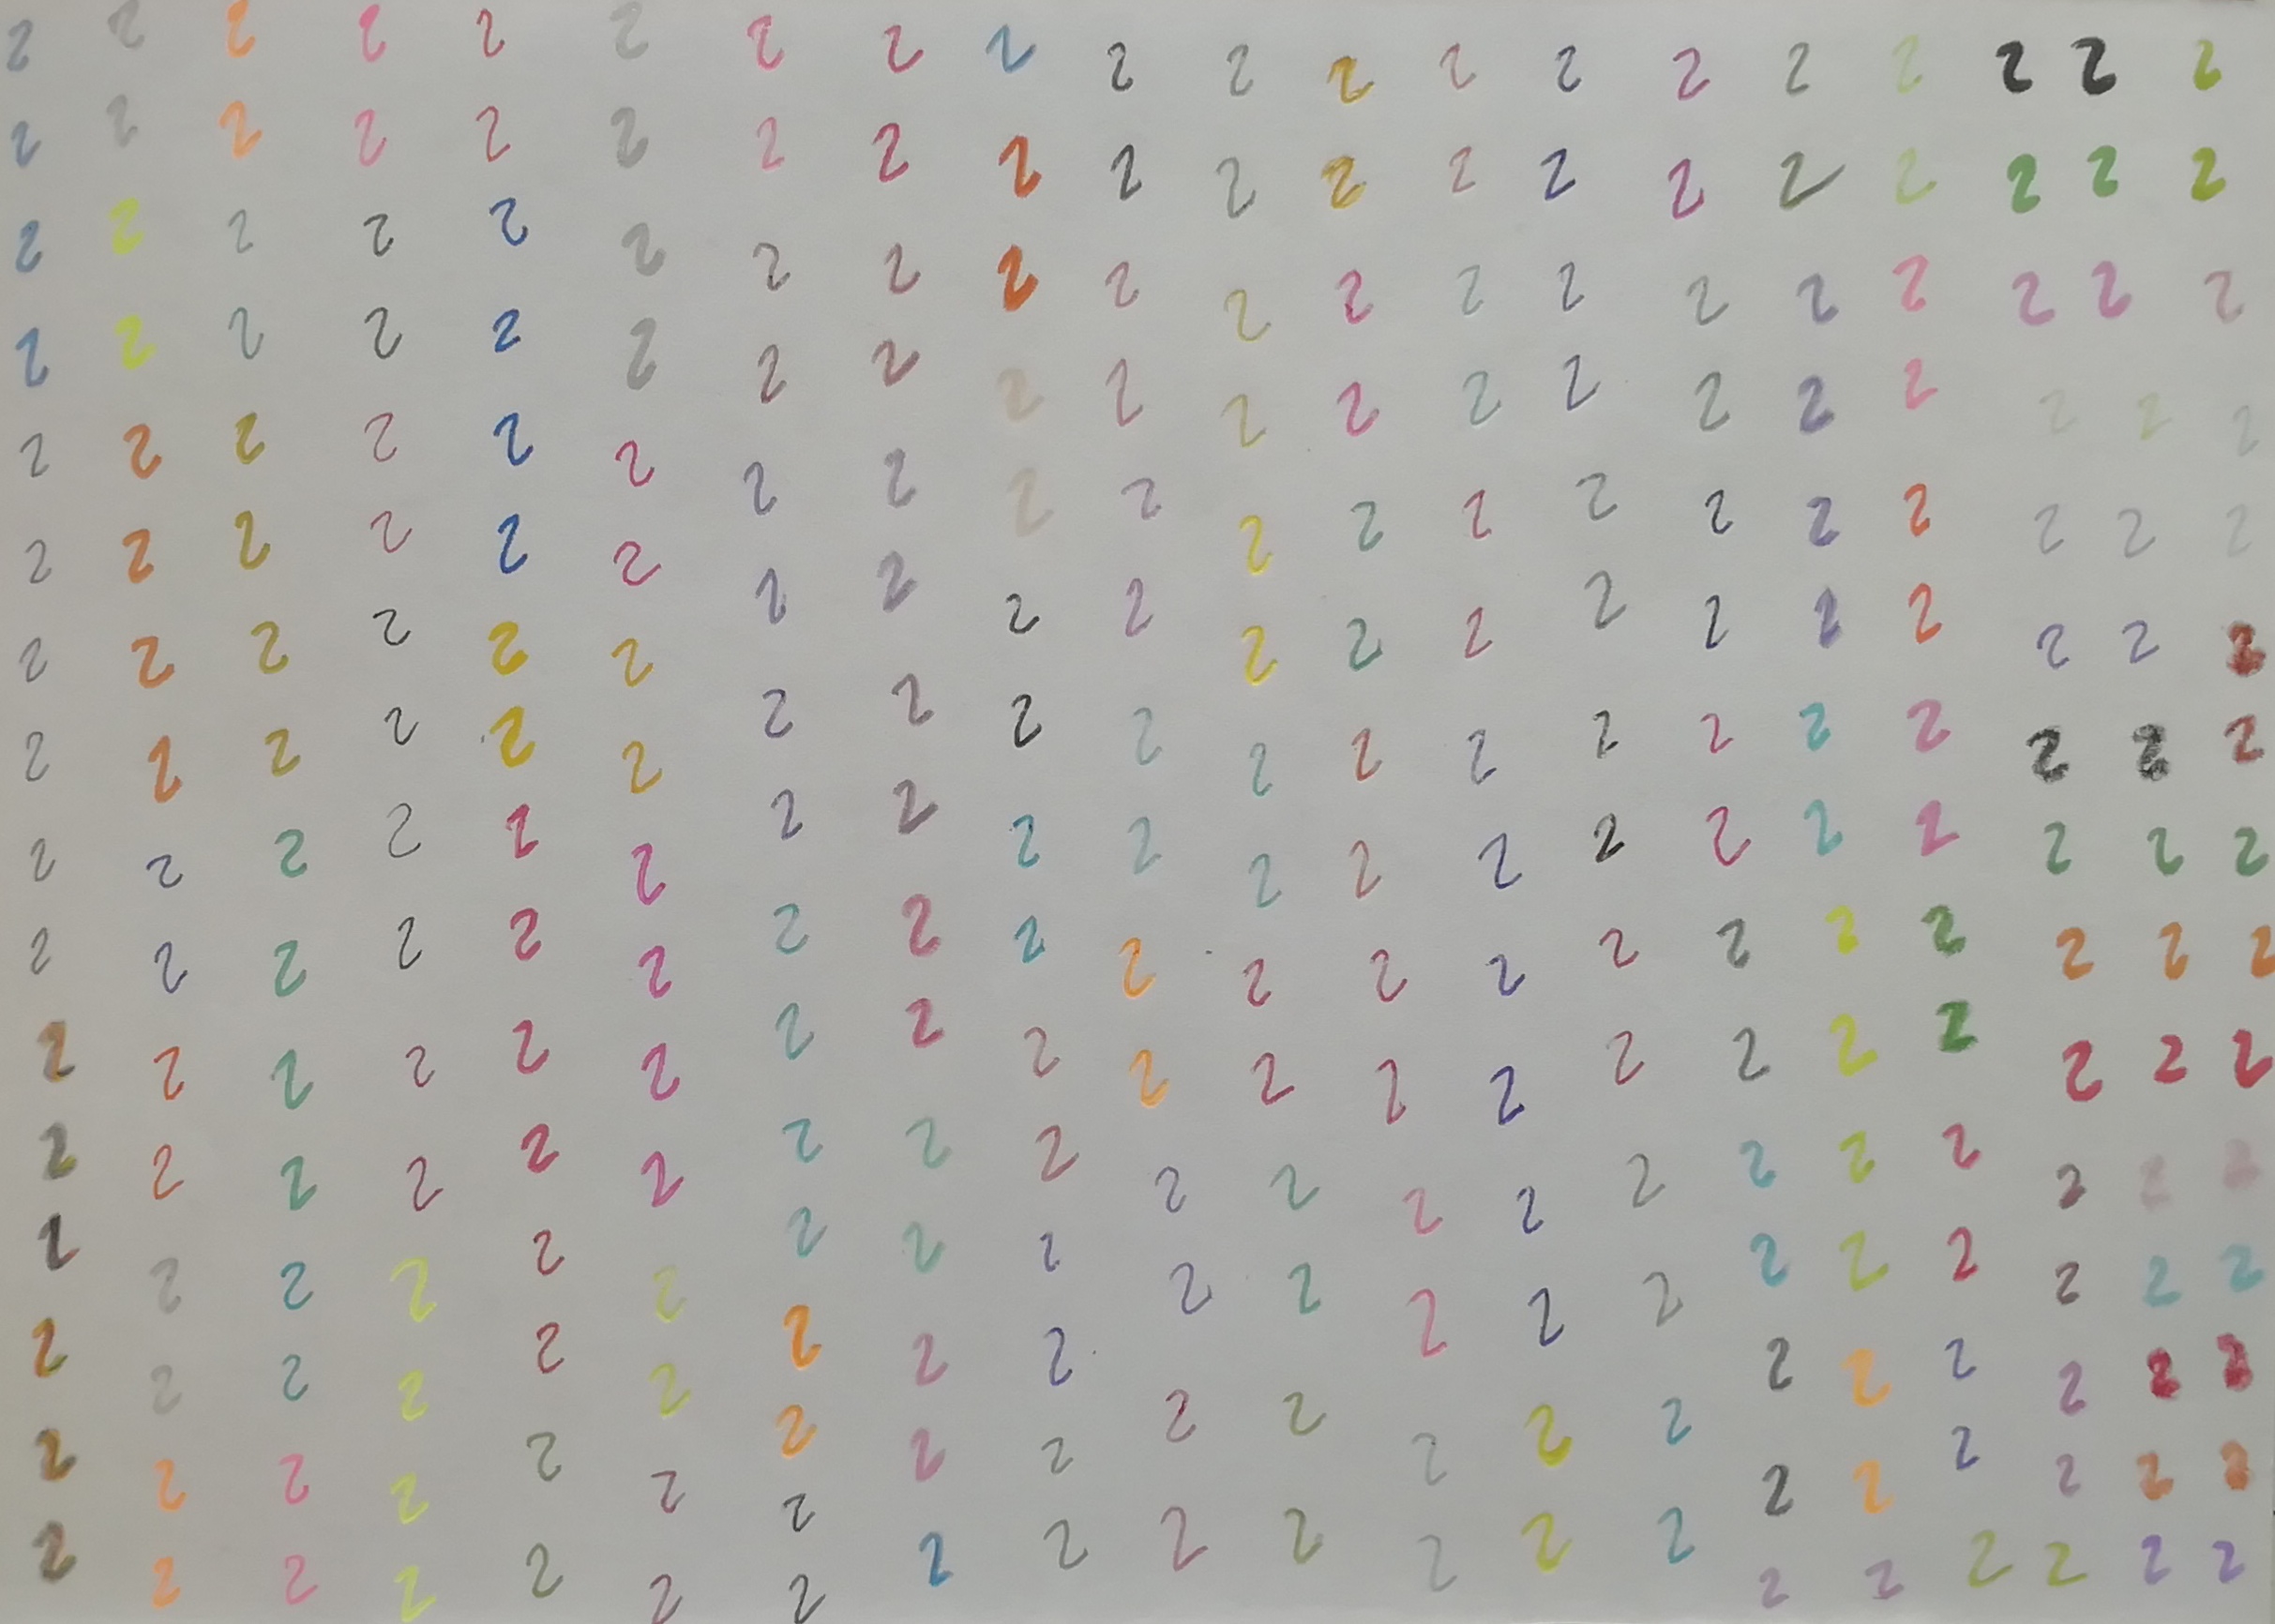 2 2 2 2 2 2 2 2 2 2 2 2 2 2 2 2 2 2 2 2
2 2 2 2 2 2 2 2 2 2 2 2 2 2 2 2 2 2 2 2
2 2 2 2 2 2 2 2 2 2 2 2 2 2 2 2 2 2 2 2
2 2 2 2 2 2 2 2 2 2 2 2 2 2 2 2 2 2 2 2
2 2 2 2 2 2 2 2 2 2 2 2 2 2 2 2 2 2 2 2
2 2 2 2 2 2 2 2 2 2 2 2 2 2 2 2 2 2 2 2
2 2 2 2 2 2 2 2 2 2 2 2 2 2 2 2 2 2 2 2
2 2 2 2 2 2 2 2 2 2 2 2 2 2 2 2 2 2 2 2
2 2 2 2 2 2 2 2 2 2 2 2 2 2 2 2 2 2 2 2
2 2 2 2 2 2 2 2 2 2 2 2 2 2 2 2 2 2 2 2
2 2 2 2 2 2 2 2 2 2 2 2 2 2 2 2 2 2 2 2
2 2 2 2 2 2 2 2 2 2 2 2 2 2 2 2 2 2 2 2
2 2 2 2 2 2 2 2 2 2 2 2 2 2 2 2 2 2 2 2
2 2 2 2 2 2 2 2 2 2 2 2 2 2 2 2 2 2 2 2
2 2 2 2 2 2 2 2 2 2 2 2 2 2 2
2 2 2 2 2 2 2